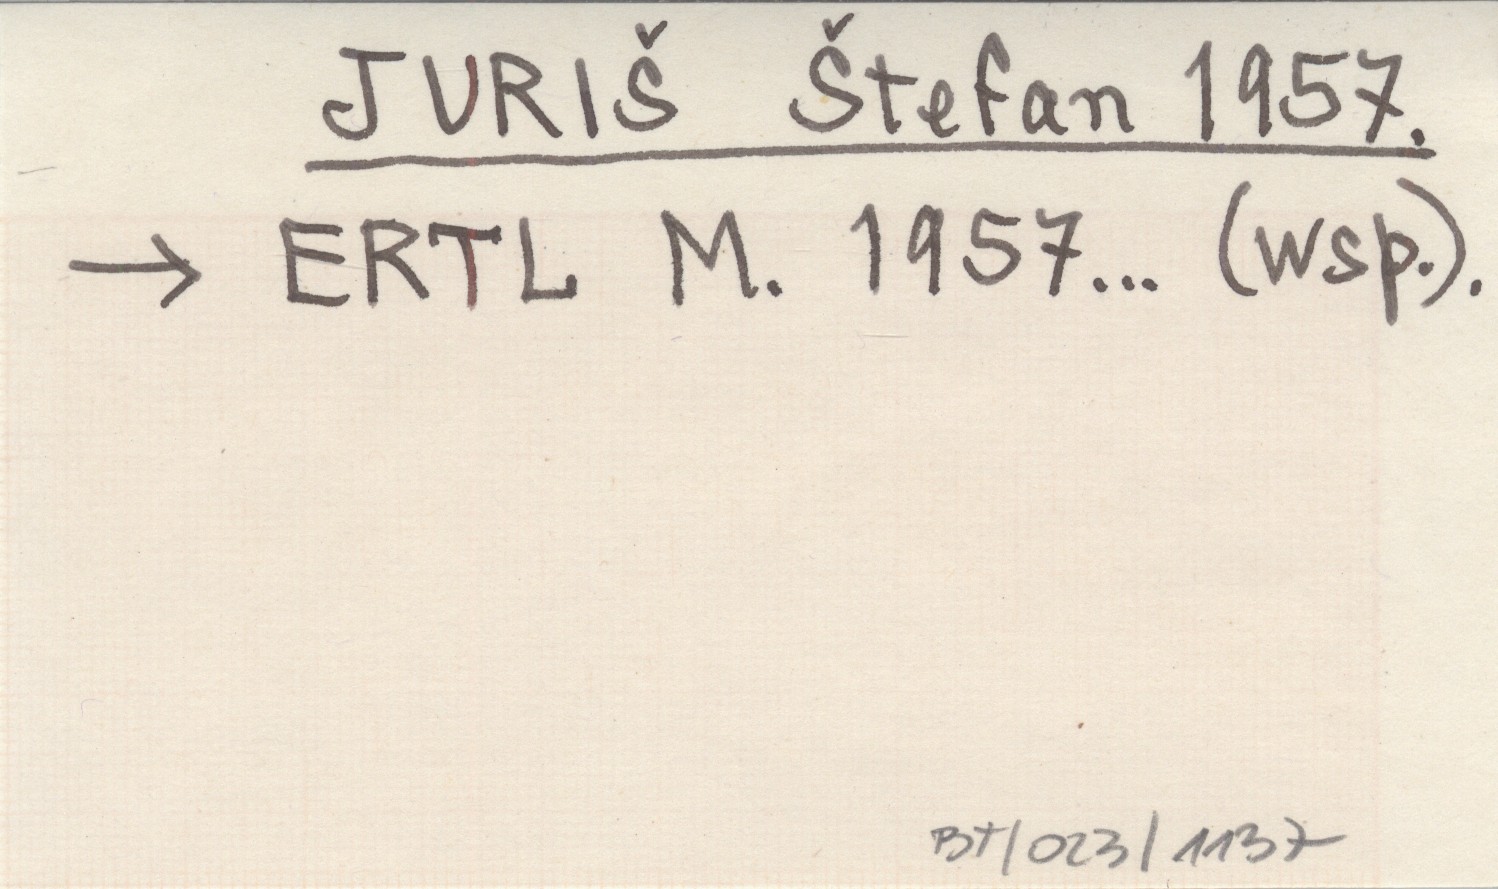 JURIŠ Štefan 1957.
→ ERTL M. 1957... (wsp.).
BT/023/1137